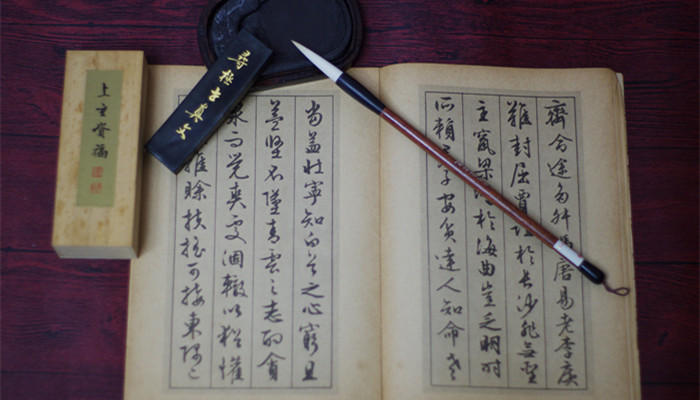 齊命途多舛馮唐易老李廣
難封屈賈於長沙非無聖
主竄梁於海曲豈乏明時
所賴子安貧達人知命老
當益壯寧知白首之心窮且
益堅不墜青雲之志酌貪
泉而覺爽處涸轍以猶懽
雖賒扶搖可接東隅已
尋極古真文